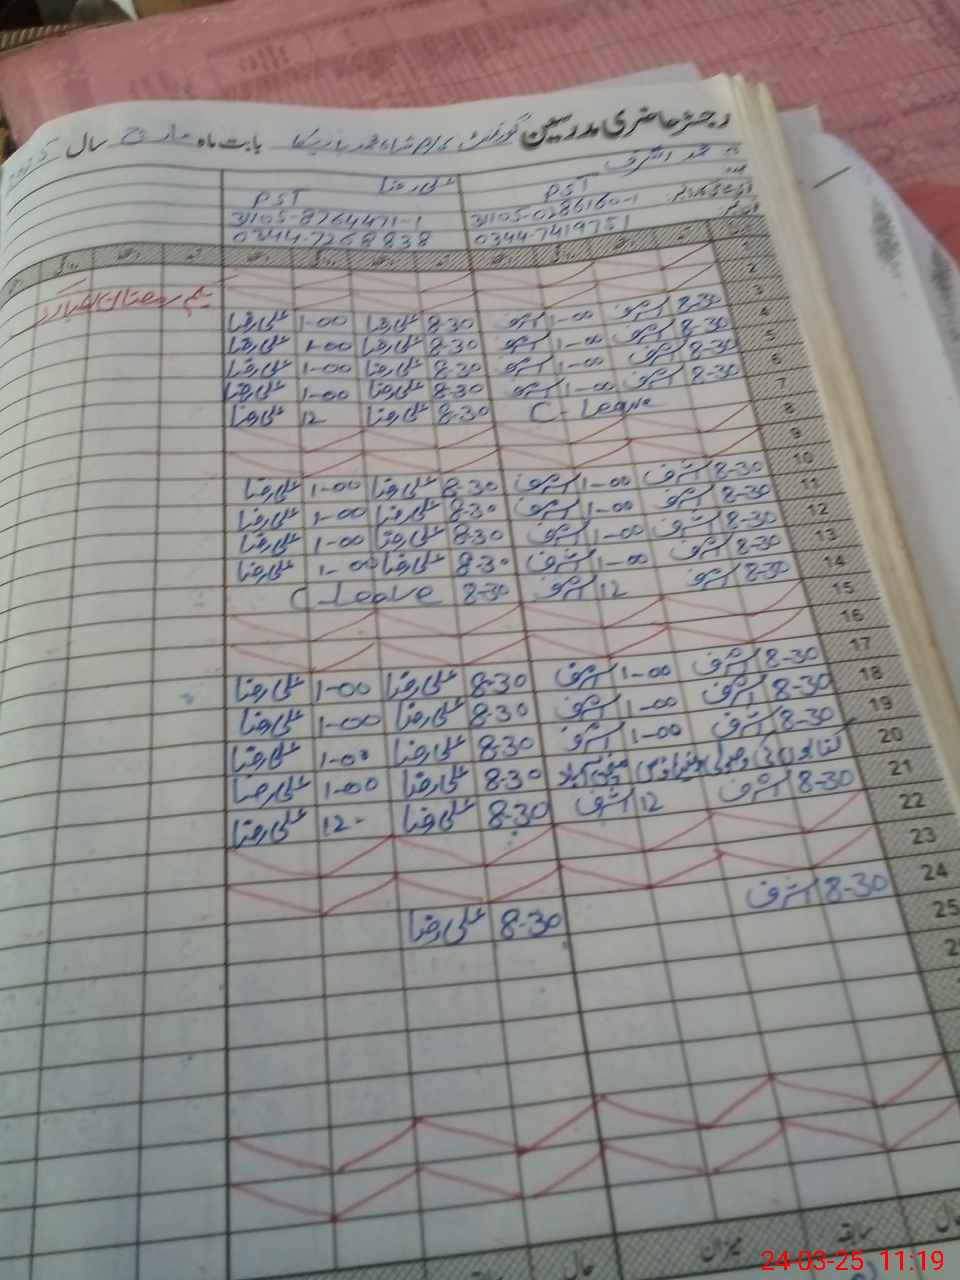 رجسٹر حاضری مدرسین گورنمنٹ بابت ماہ مارچ سال
محمد اشرف علی رضا
PST PST
31105-0286160-1 31105-8264471-1
0344-7419751 0344-7268838
1
2
یکم رمضان المبارک
3 8-30 اشرف 1-00 اشرف 8-30 علی رضا 1-00 علی رضا
4 8-30 اشرف 1-00 اشرف 8-30 علی رضا 1-00 علی رضا
5 8-30 اشرف 1-00 اشرف 8-30 علی رضا 1-00 علی رضا
6 8-30 اشرف 1-00 اشرف 8-30 علی رضا 1-00 علی رضا
7 C-Leave 8-30 علی رضا 12 علی رضا
8
9
10 8-30 اشرف 1-00 اشرف 8-30 علی رضا 1-00 علی رضا
11 8-30 اشرف 1-00 اشرف 8-30 علی رضا 1-00 علی رضا
12 8-30 اشرف 1-00 اشرف 8-30 علی رضا 1-00 علی رضا
13 8-30 اشرف 1-00 اشرف 8-30 علی رضا 1-00 علی رضا
14 8-30 اشرف 12 اشرف 8-30 C-Leave
15
16
17 8-30 اشرف 1-00 اشرف 8-30 علی رضا 1-00 علی رضا
18 8-30 اشرف 1-00 اشرف 8-30 علی رضا 1-00 علی رضا
19 8-30 اشرف 1-00 اشرف 8-30 علی رضا 1-00 علی رضا
20 8-30 علی رضا 1-00 علی رضا
21 8-30 اشرف 12 اشرف 8-30 علی رضا 12- علی رضا
22
23
24 8-30 اشرف 8-30 علی رضا
25
میزان سابقہ حال
24-03-25 11:19